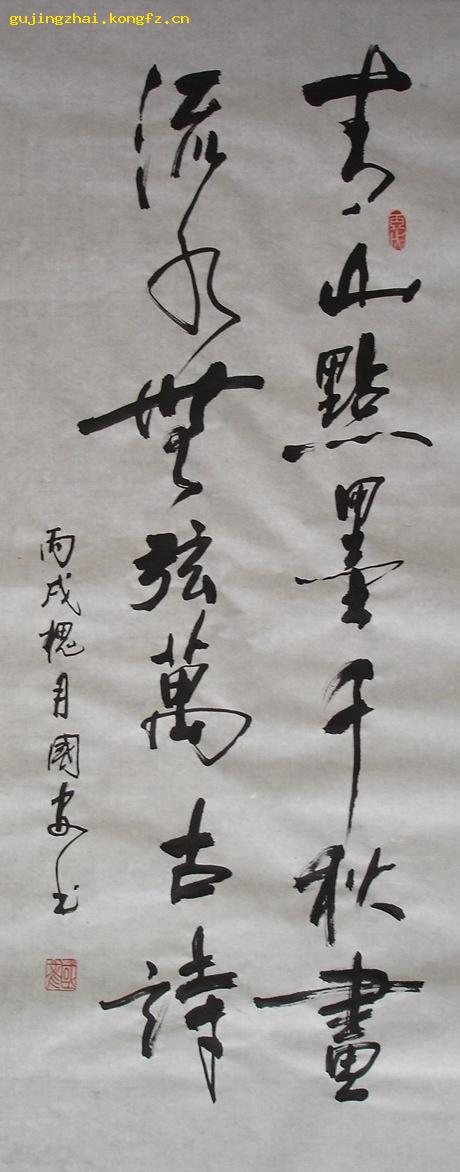 gujingzhai.kongfz.cn
青山點墨千秋畫
流水無弦萬古詩
丙戌槐月國安书